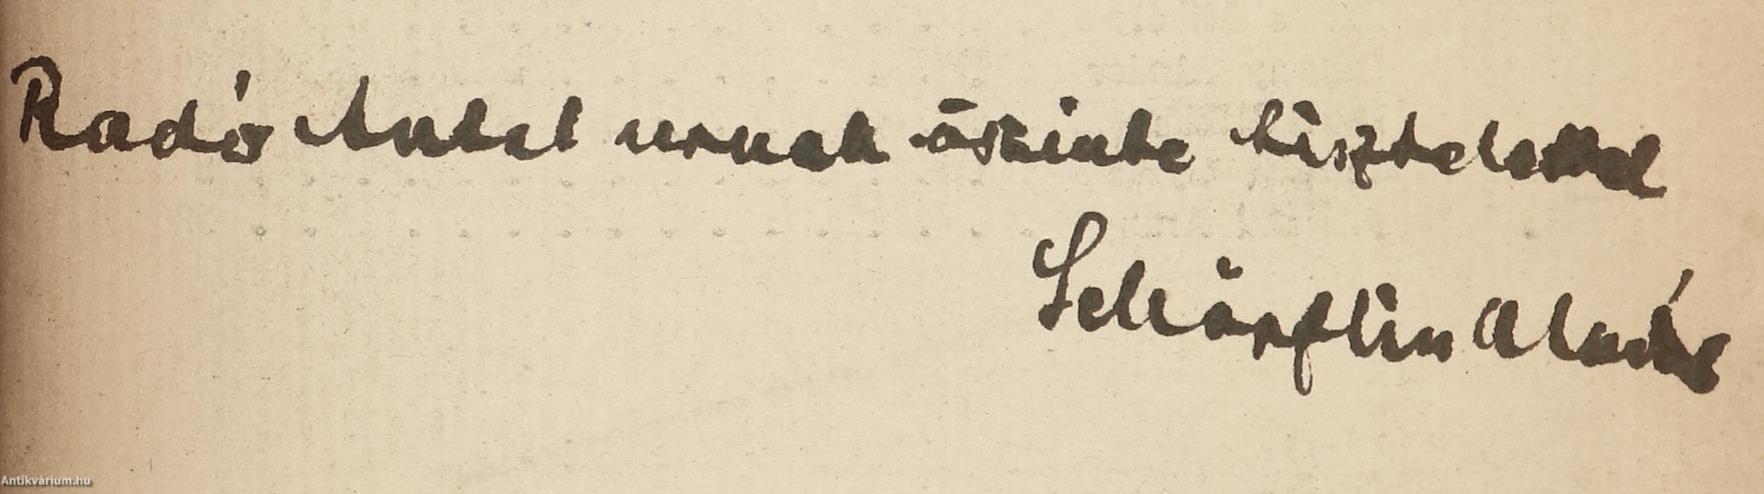 Radó Antal urnak őszinte tisztelettel
Schöpflin Aladár
Antikvárium.hu